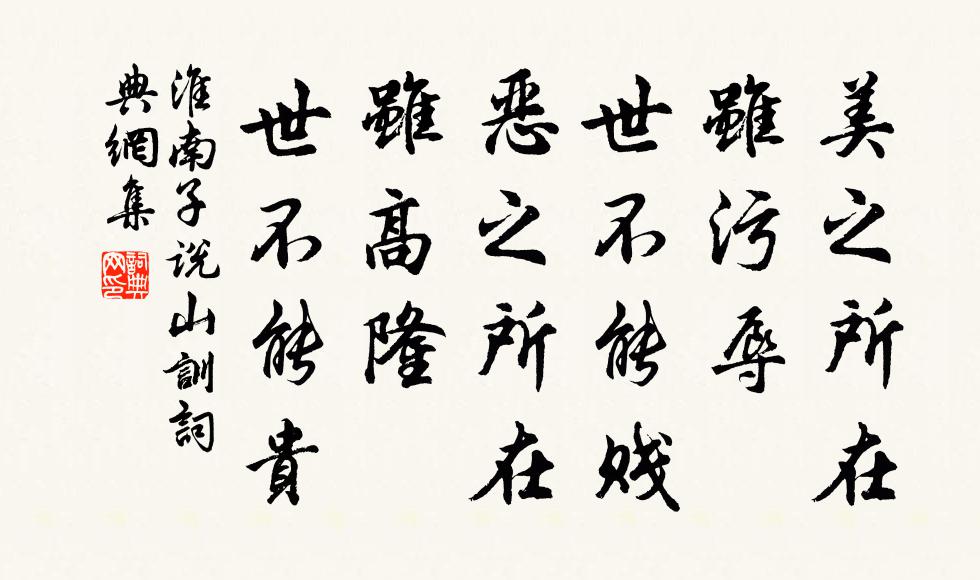 美之所在
雖污辱
世不能賤
惡之所在
雖高隆
世不能貴
淮南子説山訓詞
典網集
詞典
网印